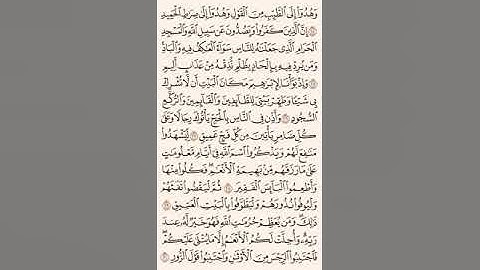 وَهُدُوٓا۟ إِلَى ٱلطَّيِّبِ مِنَ ٱلْقَوْلِ وَهُدُوٓا۟ إِلَىٰ صِرَٰطِ ٱلْحَمِيدِ
۝ إِنَّ ٱلَّذِينَ كَفَرُوا۟ وَيَصُدُّونَ عَن سَبِيلِ ٱللَّهِ وَٱلْمَسْجِدِ
ٱلْحَرَامِ ٱلَّذِى جَعَلْنَٰهُ لِلنَّاسِ سَوَآءً ٱلْعَٰكِفُ فِيهِ وَٱلْبَادِ
وَمَن يُرِدْ فِيهِ بِإِلْحَادٍۭ بِظُلْمٍ نُّذِقْهُ مِنْ عَذَابٍ أَلِيمٍ
۝ وَإِذْ بَوَّأْنَا لِإِبْرَٰهِيمَ مَكَانَ ٱلْبَيْتِ أَن لَّا تُشْرِكْ
بِى شَيْـًٔا وَطَهِّرْ بَيْتِىَ لِلطَّآئِفِينَ وَٱلْقَآئِمِينَ وَٱلرُّكَّعِ
ٱلسُّجُودِ ۝ وَأَذِّن فِى ٱلنَّاسِ بِٱلْحَجِّ يَأْتُوكَ رِجَالًا وَعَلَىٰ
كُلِّ ضَامِرٍ يَأْتِينَ مِن كُلِّ فَجٍّ عَمِيقٍ ۝ لِّيَشْهَدُوا۟
مَنَٰفِعَ لَهُمْ وَيَذْكُرُوا۟ ٱسْمَ ٱللَّهِ فِىٓ أَيَّامٍ مَّعْلُومَٰتٍ
عَلَىٰ مَا رَزَقَهُم مِّنۢ بَهِيمَةِ ٱلْأَنْعَٰمِ ۖ فَكُلُوا۟ مِنْهَا
وَأَطْعِمُوا۟ ٱلْبَآئِسَ ٱلْفَقِيرَ ۝ ثُمَّ لْيَقْضُوا۟ تَفَثَهُمْ
وَلْيُوفُوا۟ نُذُورَهُمْ وَلْيَطَّوَّفُوا۟ بِٱلْبَيْتِ ٱلْعَتِيقِ ۝
ذَٰلِكَ وَمَن يُعَظِّمْ حُرُمَٰتِ ٱللَّهِ فَهُوَ خَيْرٌ لَّهُۥ عِندَ
رَبِّهِۦ ۗ وَأُحِلَّتْ لَكُمُ ٱلْأَنْعَٰمُ إِلَّا مَا يُتْلَىٰ عَلَيْكُمْ ۖ
فَٱجْتَنِبُوا۟ ٱلرِّجْسَ مِنَ ٱلْأَوْثَٰنِ وَٱجْتَنِبُوا۟ قَوْلَ ٱلزُّورِ ۝